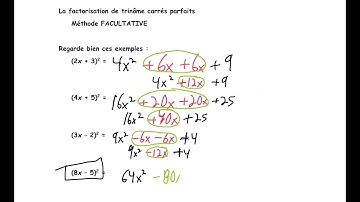 La factorisation de trinôme carrés parfaits
Méthode FACULTATIVE
Regarde bien ces exemples :
(2x + 3)² = 4x² +6x +6x +9
4x² +12x +9
(4x + 5)² = 16x² +20x +20x +25
16x² +40x +25
(3x - 2)² = 9x² -6x -6x +4
9x² -12x +4
(8x - 5)² = 64x² -80x